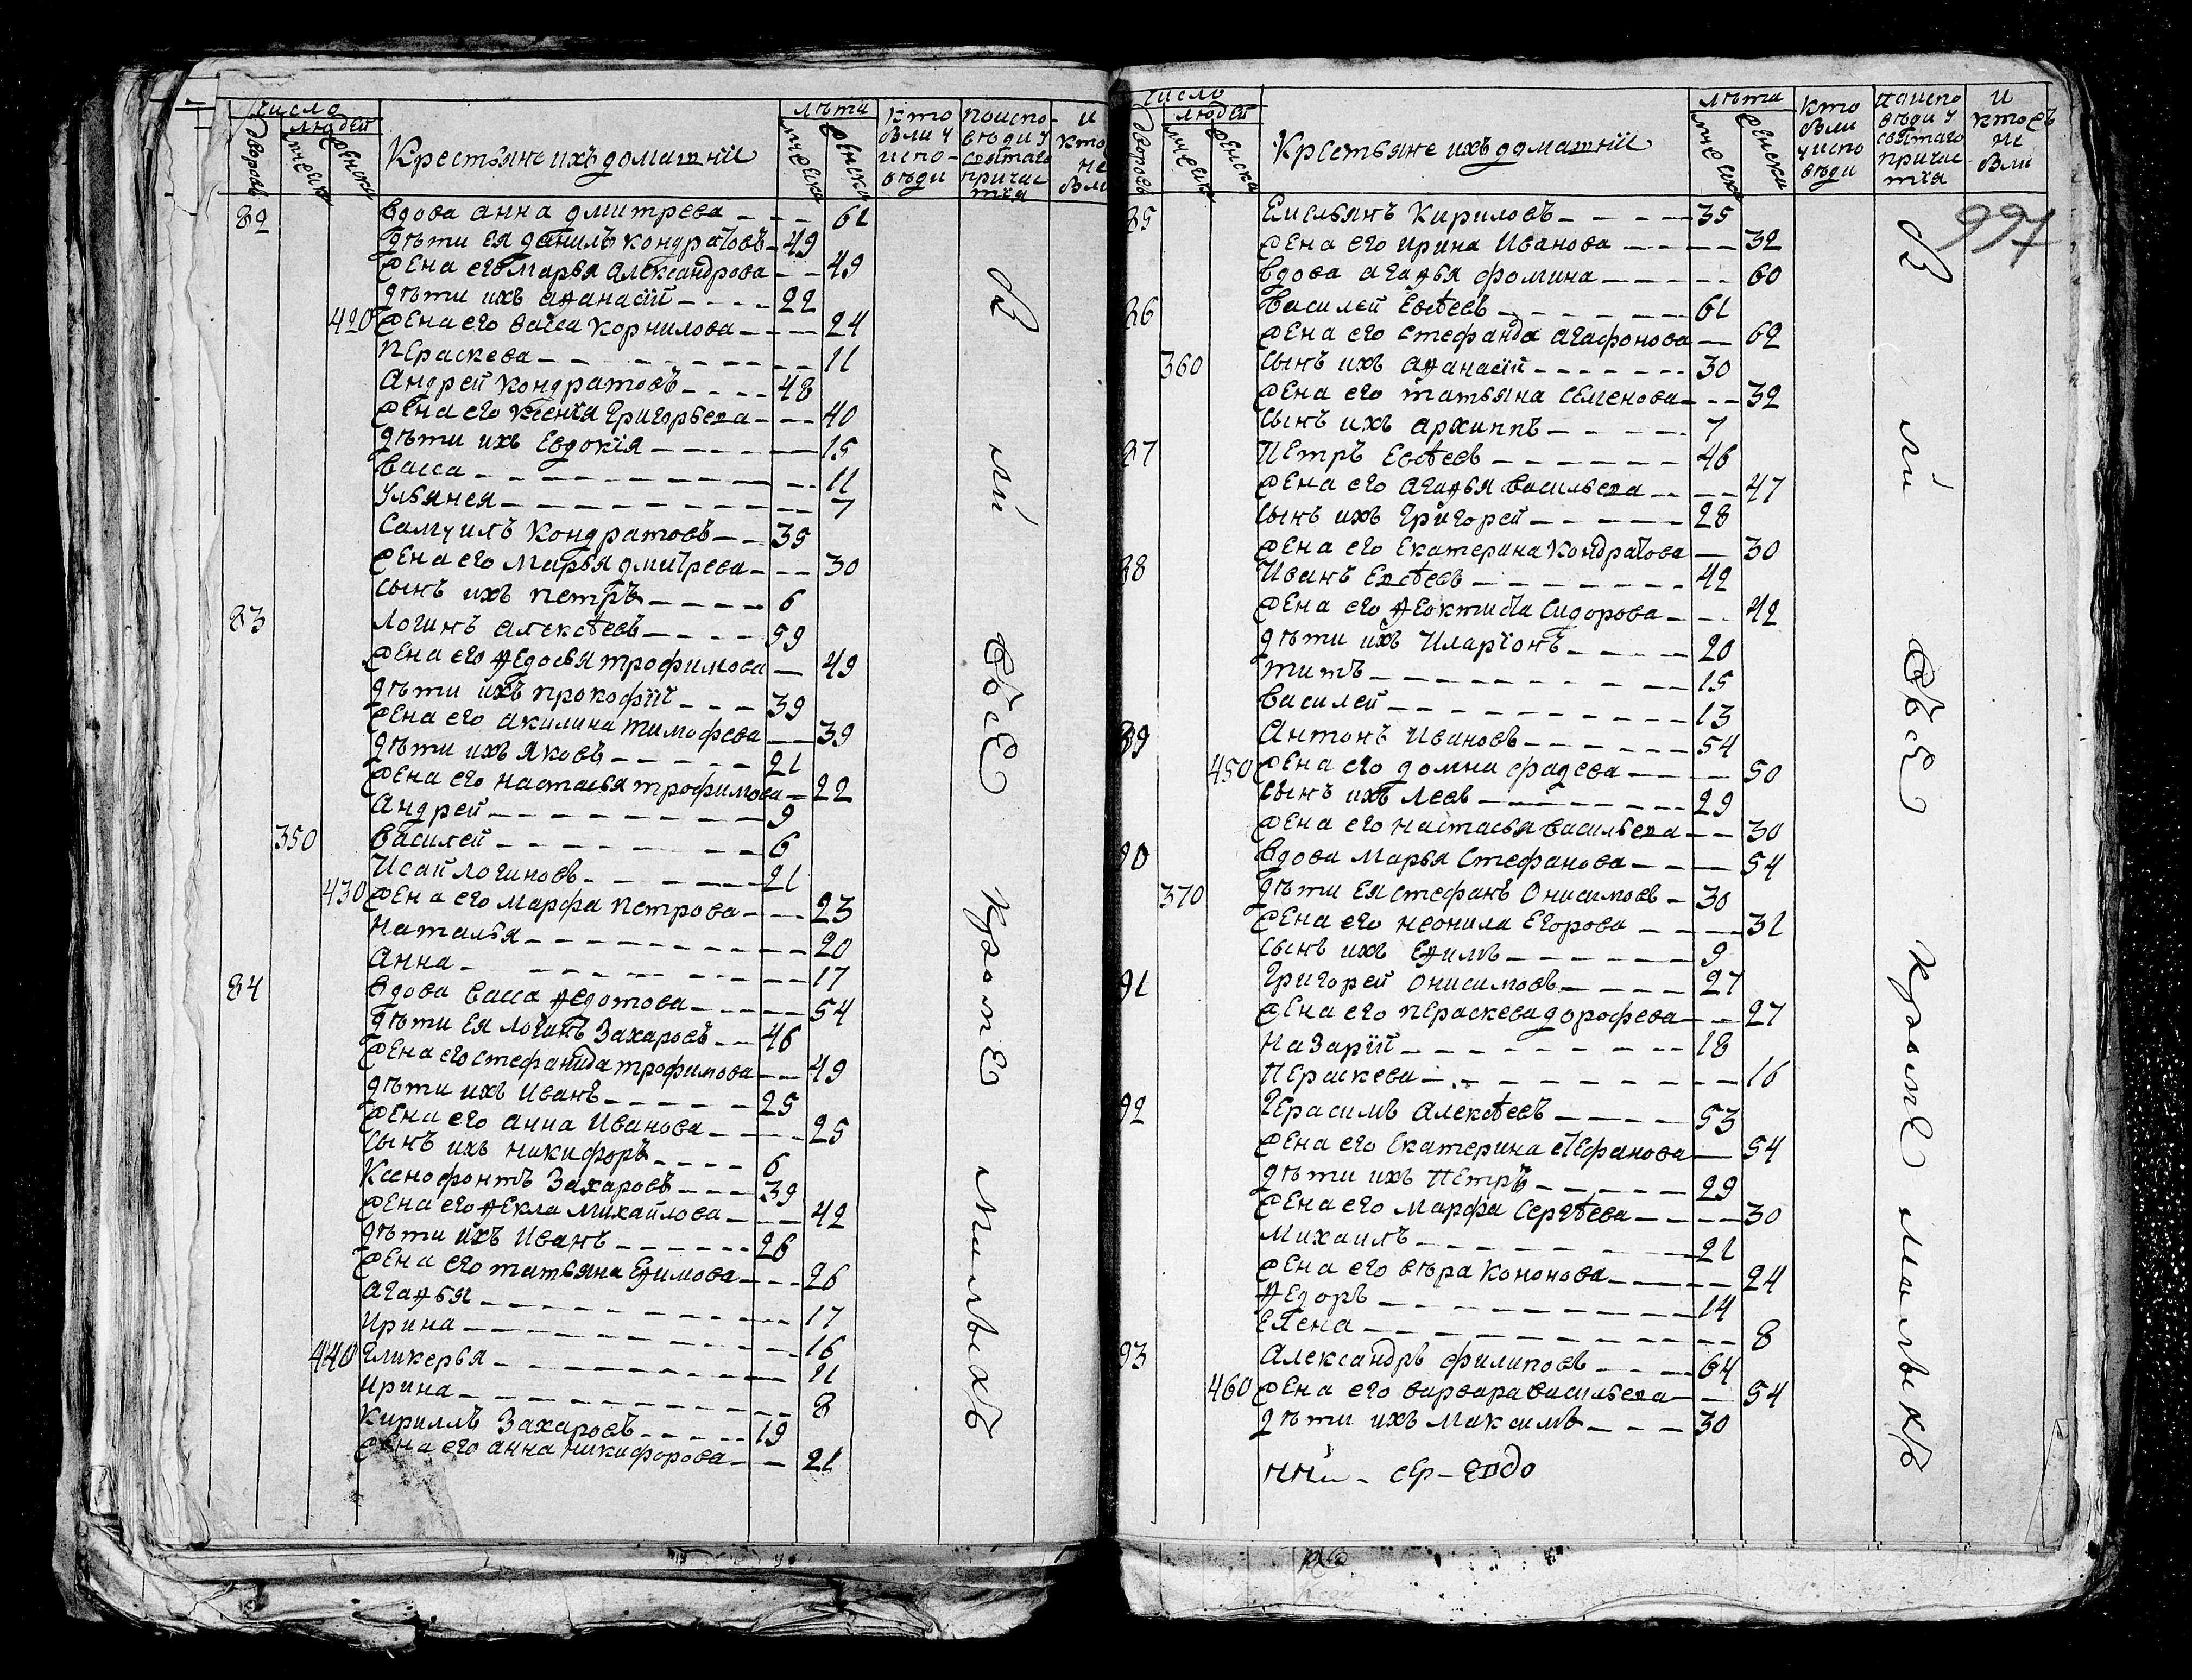 число
людей
дворовъ
мужеска
женска
Крестьяне ихъ домашнїи
лѣта
мужеска
женска
кто были у испо-вѣди
по испо-вѣди у святаго причас-тїя
и кто не были
82 Вдова Анна Дмитрева 61
Дѣти ея Данилъ Кондратовъ 49
Жена его Марья Александрова 49
Дѣти ихъ Аѳанасїй 22
420 Жена его Васса Корнилова 24
Пераскева 11
Андрей Кондратовъ 48
Жена его Ксенїя Григорьева 40
Дѣти ихъ Евдокїя 15
Васса 11
Ульянея 7
Самуилъ Кондратовъ 35
Жена его Марья Дмитрева 30
Сынъ ихъ Петръ 6
83 Логинъ Алексѣевъ 59
Жена его Ѳедосья Трофимова 49
Дѣти ихъ Прокофїй 39
Жена его Акилина Тимофева 39
Дѣти ихъ Яковъ 21
Жена его Настасья Трофимова 22
Андрей 9
350 Василей 6
Исай Логиновъ 21
430 Жена его Марфа Петрова 23
Наталья 20
Анна 17
84 Вдова Васса Ѳедотова 54
Дѣти ея Логинъ Захаровъ 46
Жена его Стефанида Трофимова 49
Дѣти ихъ Иванъ 25
Жена его Анна Иванова 25
Сынъ ихъ Никифоръ 6
Ксенофонтъ Захаровъ 39
Жена его Ѳекла Михайлова 42
Дѣти ихъ Иванъ 26
Жена его Татьяна Еѳимова 26
Агаѳья 17
Ирина 16
440 Гликерья 11
Ирина 8
Кириллъ Захаровъ 19
Жена его Анна Никифорова 21
Были Всѣ Кромѣ Малыхъ
число
людей
дворовъ
мужеска
женска
Крестьяне ихъ домашнїи
лѣта
мужеска
женска
кто были у испо вѣди
по испо вѣди у святаго причас тїя
и ктожъ не были
997
85 Емельянъ Кириловъ 35
Жена его Ирина Иванова 32
Вдова Агаѳья Фомина 60
86 Василей Евсѣевъ 61
Жена его Стефанида Агафонова 62
360 Сынъ ихъ Аѳанасїй 30
Жена его Татьяна Семенова 32
Сынъ ихъ Архиппъ 7
87 Петръ Евсѣевъ 46
Жена его Агаѳья Васильева 47
Сынъ ихъ Григорей 28
Жена его Екатерина Кондратова 30
88 Иванъ Евсѣевъ 42
Жена его Ѳеоктиста Сидорова 42
Дѣти ихъ Иларїонъ 20
Титъ 15
Василей 13
89 Антонъ Ивановъ 54
450 Жена его Домна Фадева 50
Сынъ ихъ Левъ 29
Жена его Настасья Васильева 30
90 Вдова Марья Стефанова 54
370 Дѣти ея Стефанъ Онисимовъ 30
Жена его Неонила Егорова 31
Сынъ ихъ Еѳимъ 9
91 Григорей Онисимовъ 27
Жена его Пераскева Дорофева 27
Назарїй 18
Пераскева 16
92 Герасимъ Алексѣевъ 53
Жена его Екатерина Стефанова 54
Дѣти ихъ Петръ 29
Жена его Марфа Сергѣева 30
Михаилъ 21
Жена его Вѣра Кононова 24
Ѳедоръ 14
Елена 8
93 Александръ Филиповъ 64
460 Жена его Варвара Васильева 54
Дѣти ихъ Максимъ 30
Были Всѣ Кромѣ Малыхъ